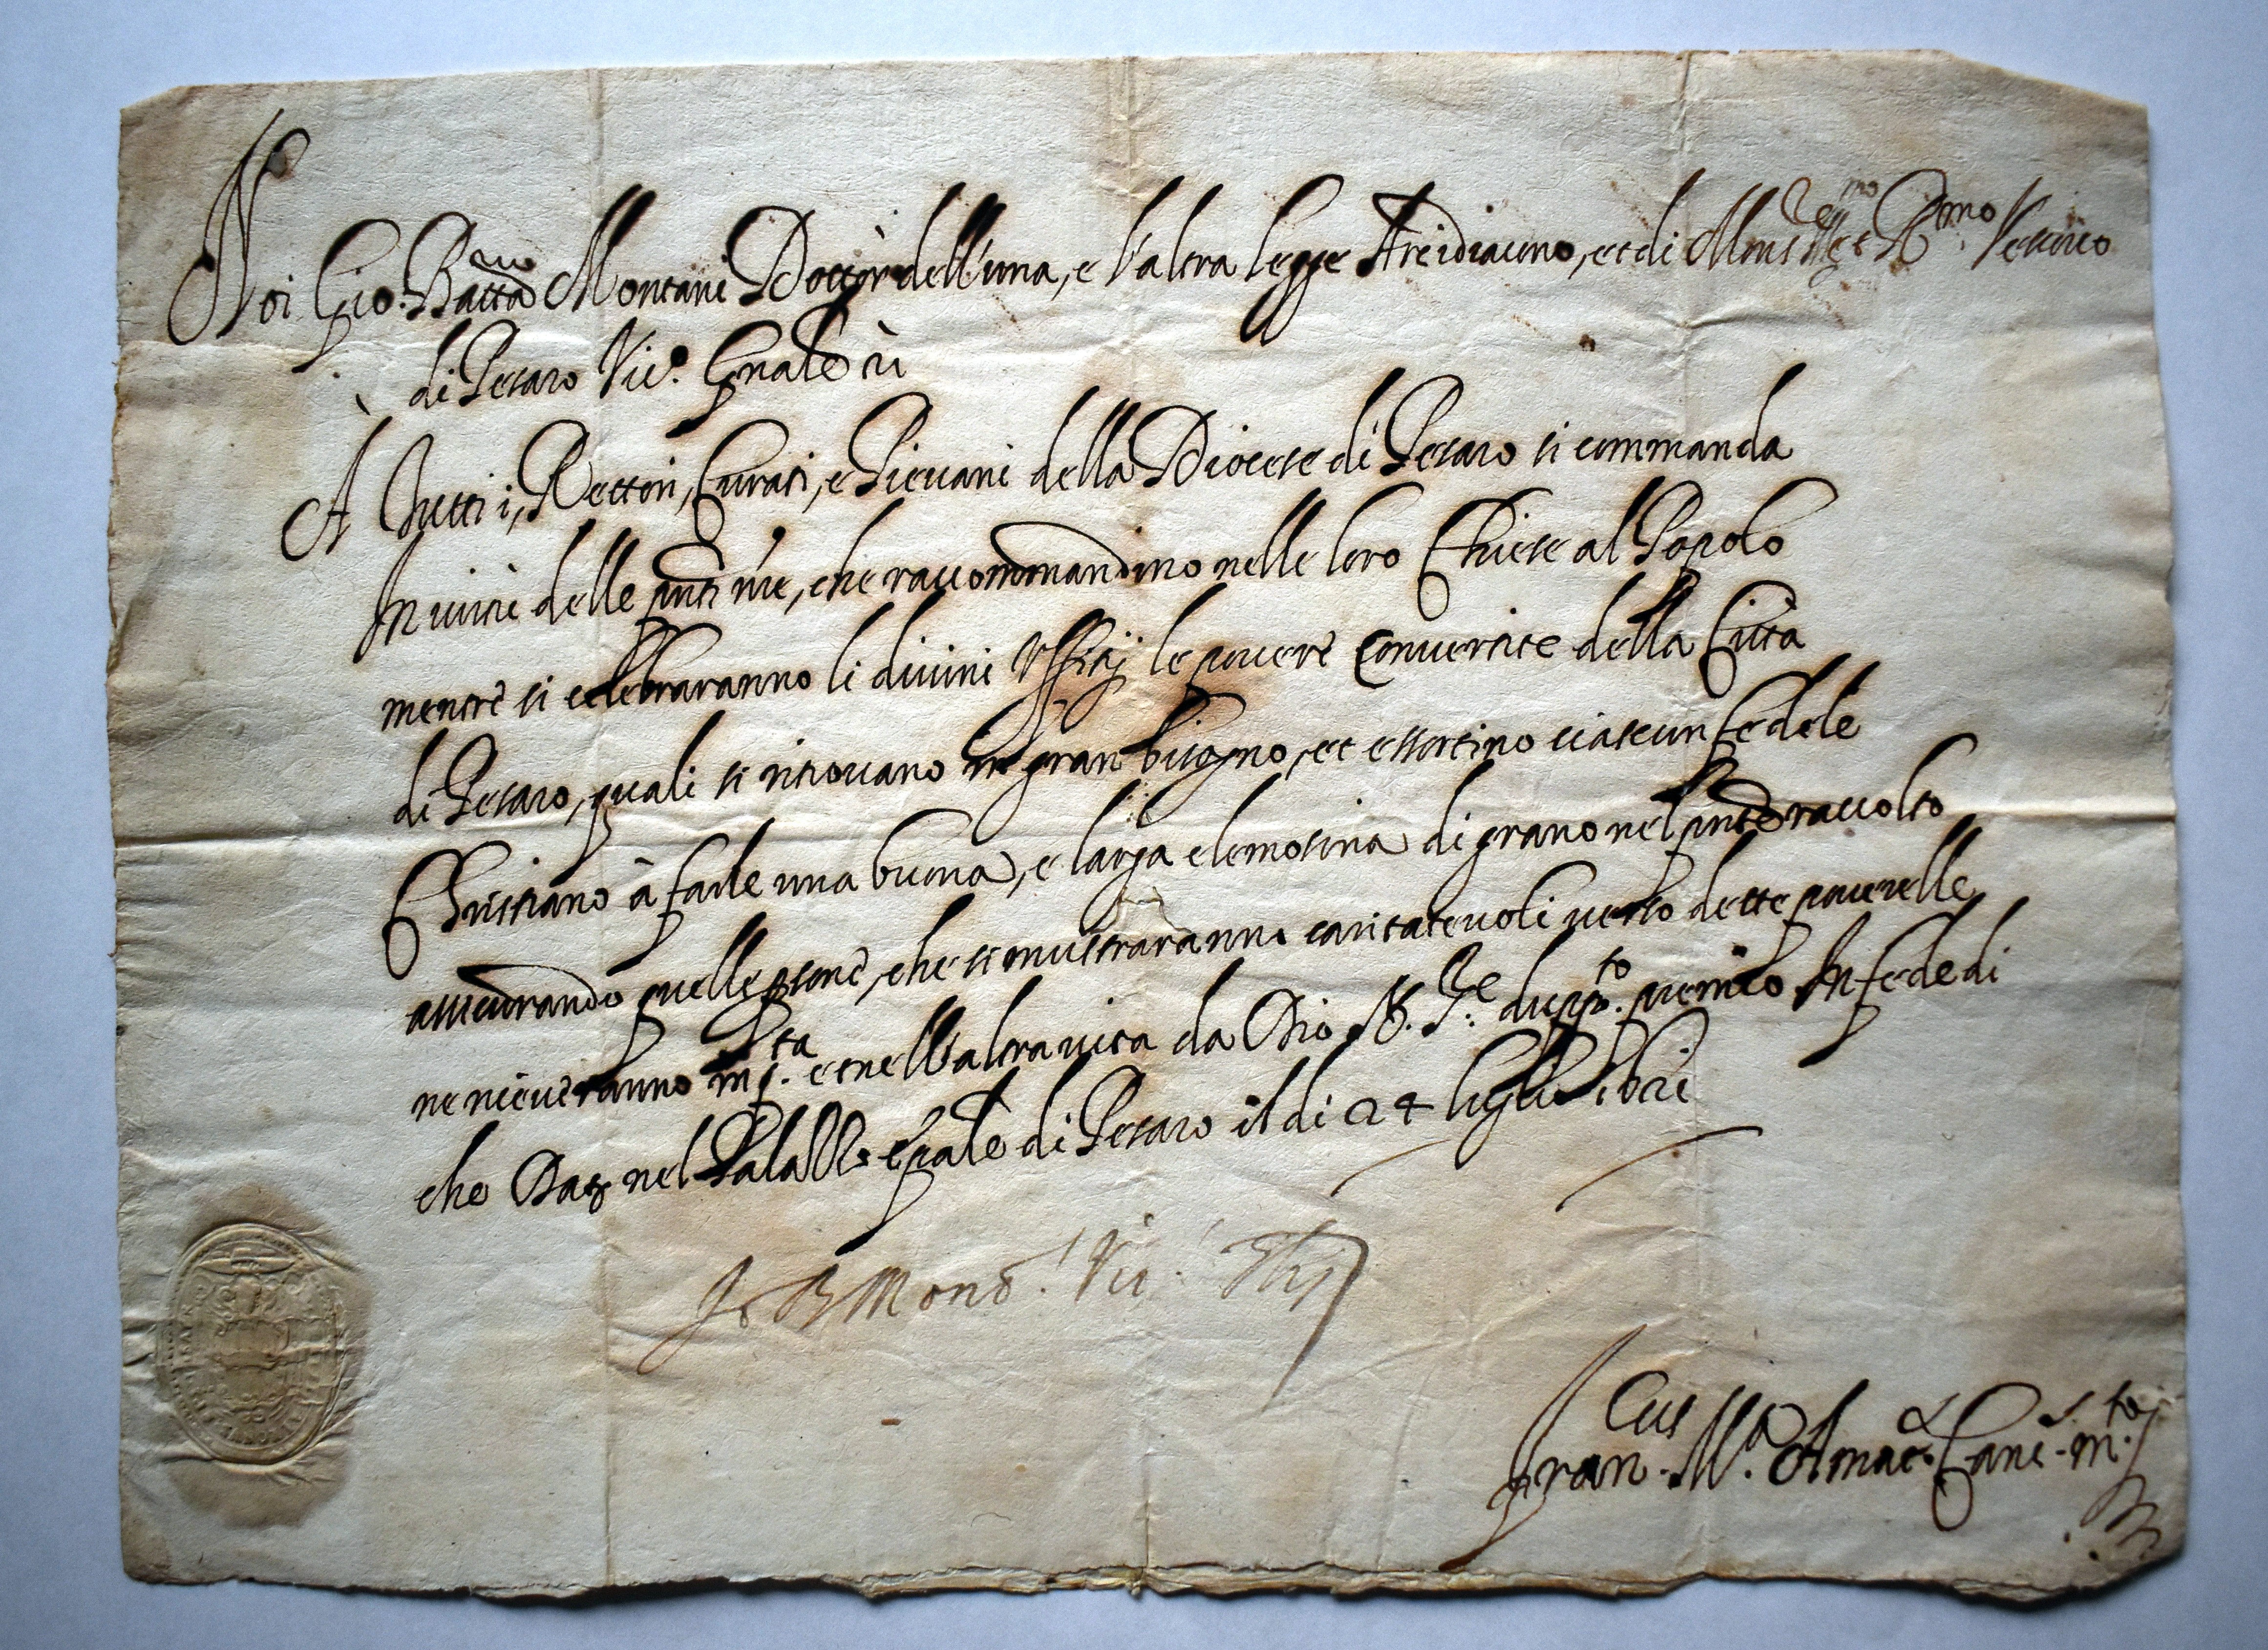 Noi Gio. Batta Montani Dottor dell'una, e l'altra legge Arcidiacono, et di Mons.r Ill.mo et R.mo Vescovo
di Pesaro Vic.o Gnale
A Tutti i, Rettori, Curati, e Pievani della Diocese di Pesaro si commanda
In virtù delle pnti nre, che raccommandino nelle loro Chiese al Popolo
mentre si celebraranno li divini Uffitij le povere Convertite della Città
di Pesaro, quali si ritrovano in gran bisogno, et essortino ciascun fedele
Christiano à farle una buona, e larga elemosina di grano nel pnte raccolto
assicurando quelle psone, che si mostraranno caritatevoli verso dette poverelle,
ne riceveranno in q.ta et nell'altra vita da Dio N. S.re dupp.to premio In fede di
che Dat nel Palazzo Epale di Pesaro il di 24 luglio
Jo B Mont. Vic.
Fran.cus M.a Can.